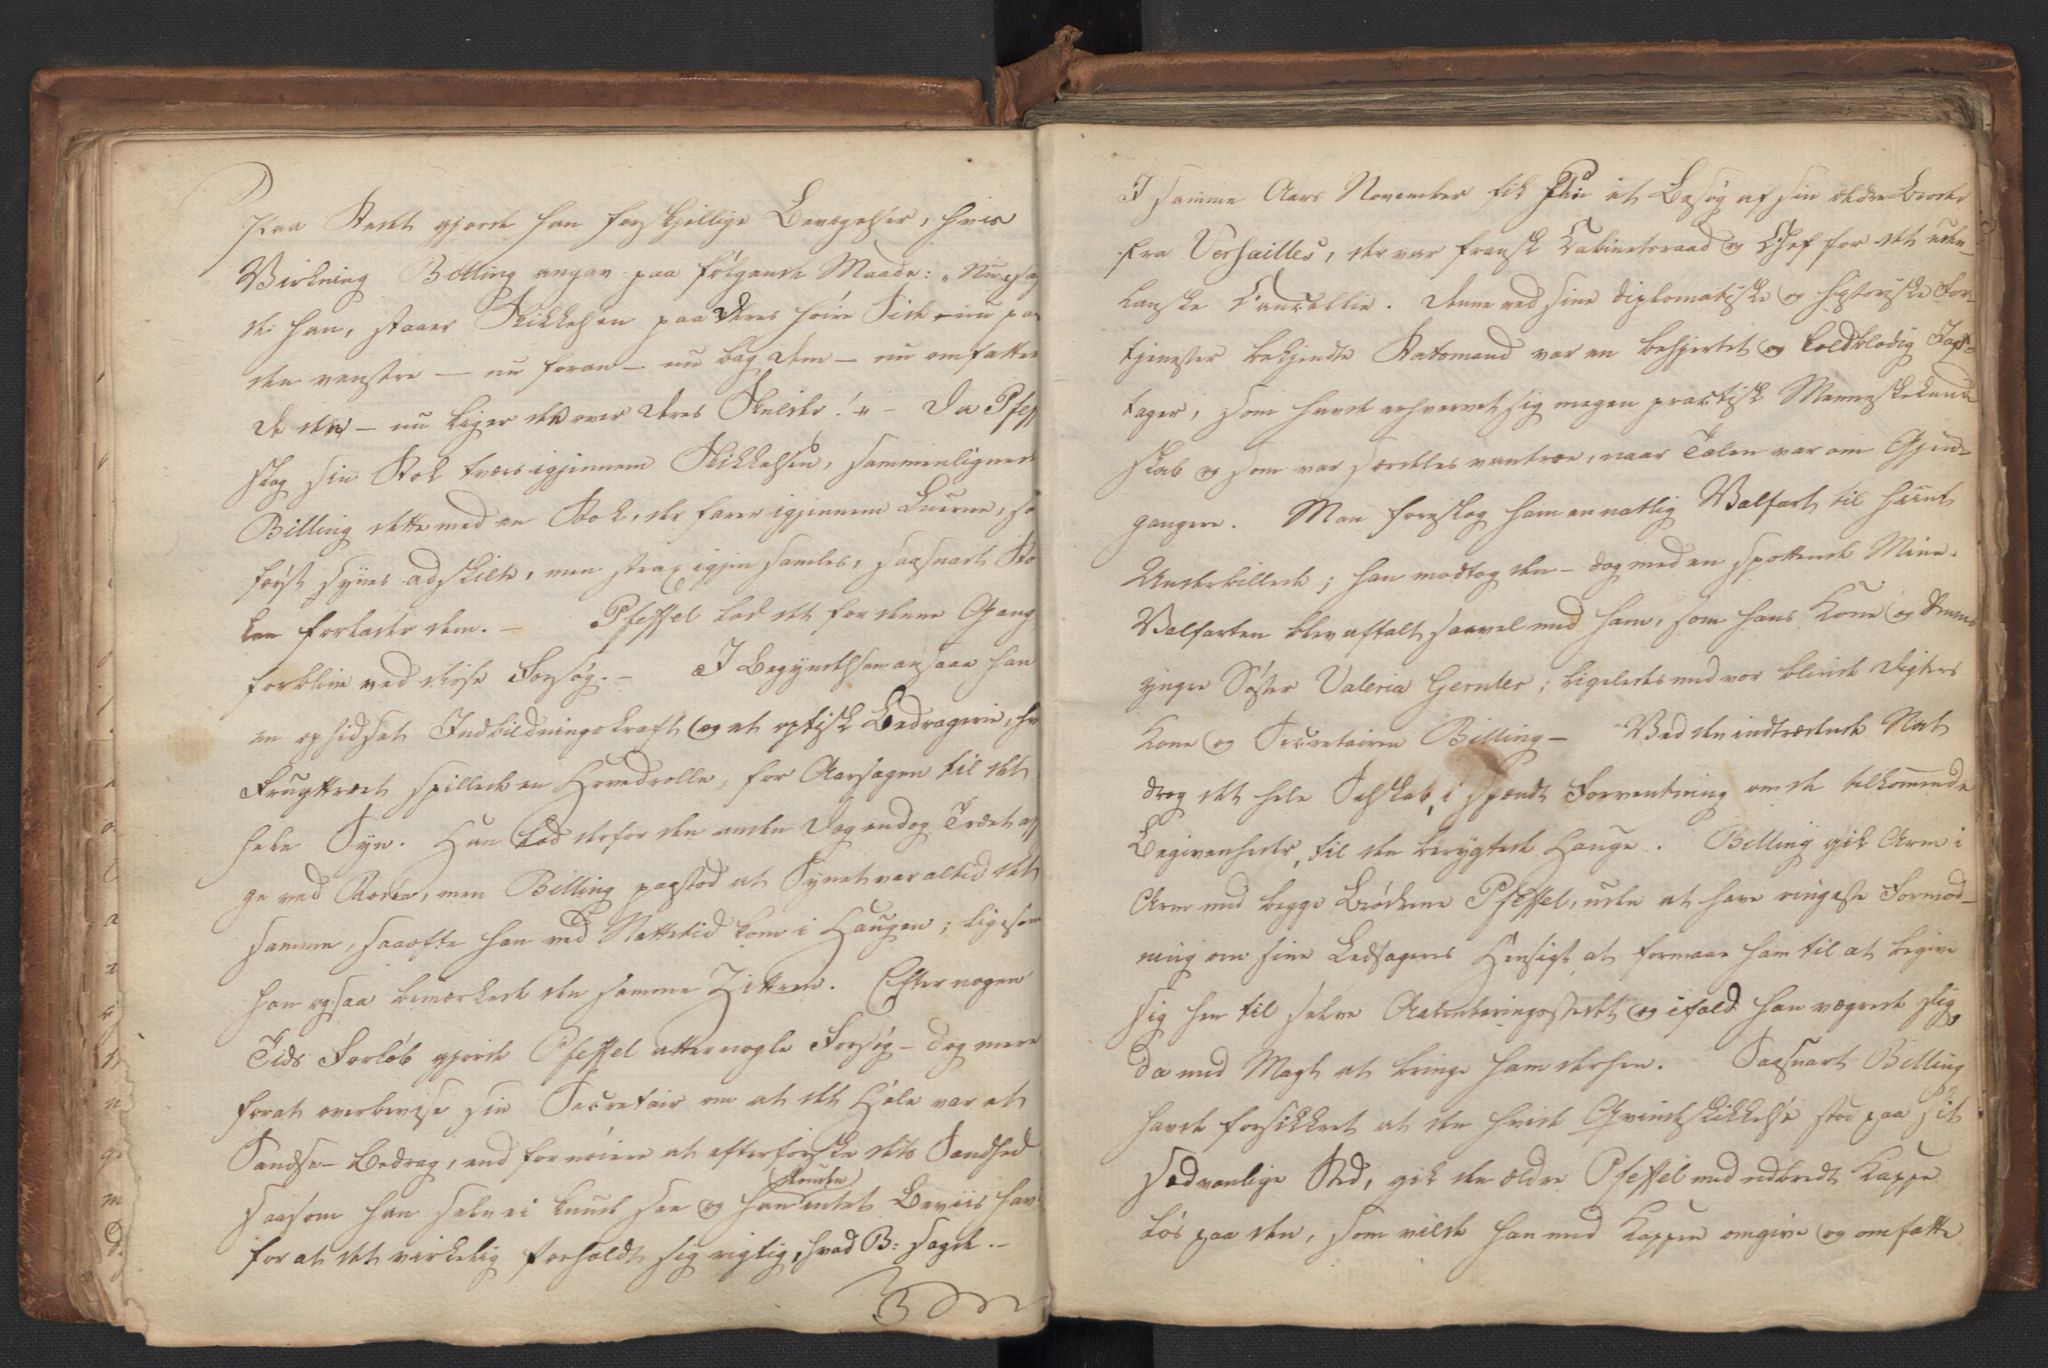 Paa Stedet gjorde han forskjellige Bevægelser, hvis
Virkning Billing angav paa følgende Maade: „Nu, sag
de han, staaer Skikkelsen paa Deres høire Side – nu paa
den venstre – nu foran – nu bag Dem – nu omfatter
De den – nu ligger den over Deres Skulder!“ – Da Pfeff
slog sin Stok tværs igjennem Skikkelsen, sammenlignede
Billing dette med en Stok, der farer igjennem Luerne, so
først synes adskilte, men strax igjen samles, saasnart Sto
ken forlader dem. – Pfeffel lod det for denne Gang
forblive ved disse Forsøg. – I Begyndelsen ansaae han
en ophidset Indbildningskraft og et optisk Bedragerie, hv
Frugttræet spillede en Hovedrolle, for Aarsagen til det
hele Syn. Han lod derfor den anden Dag endog Træet
ge ved Roden, men Billing paastod at Synet var altid det
samme, saaofte han ved Nattetid kom i Haugen; ligesom
han ogsaa bemærkede den samme Zittren. Efter nogen
Tids Forløb gjorde Pfeffel atter nogle Forsøg – dog mere
forat overbevise sin Secretair om at det Hele var et
Sandse-Bedrag, end for nøiere at efterforske dets Sandhed
saasom han selv ei kunde see og han desuden intet Beviis hav
for at det virkelig forholdt sig rigtig, hvad B: sagde. –
I samme Aars November fik Pfeffel et Besøg af sin ældre Broder
fra Versailles, der var fransk Cabinetsraad og Chef for det uden-
landske Cancellie. Denne ved sine diplomatiske og historiske For-
tjenester bekjendte Statsmand var en behjertet og koldblodig Iagt-
tager, som havde erhvervet sig megen practisk Menneskekund-
skab og som var særdeles vantroe, naar Talen var om Gjen-
gangere. Man foreslog ham en natlig Valfart til hiint
Underbillede; han modtog den – dog med en spottende Mine.
Valfarten blev aftalt saavel med ham, som hans Kone og dennes
yngre Søster Valeria Gernler; ligeledes med vor blinde Digters
Kone og Secretairen Billing – Ved den indtrædende Nat
drog det hele Selskab, i spændt Forventning om de tilkommende
Begivenheder, til den berygtede Hauge. Billing gik Arm i
Arm med begge Brødrene Pfeffel, uden at have ringeste Formod-
ning om sine Ledsageres Hensigt, at formaae ham til at begive
sig hen til selve Aabenbaringsstedet og ifald han vægrede sig,
da med Magt at bringe ham derhen. Saasnart Billing
havde forsikkret at den hvide Qvindeskikkelse stod paa sit
sædvanlige Sted, gik den ældre Pfeffel med udbredt Kappe
løs paa den, som vilde han med Kappen omgive og omfatte